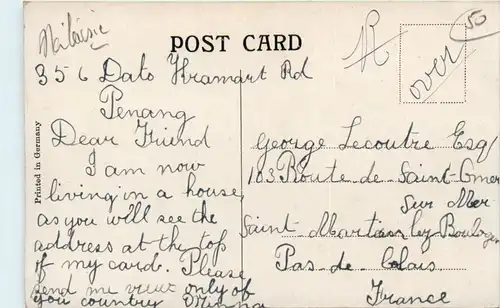 Malaisie
POST CARD
50
R
over
356 Dato Kramart Rd
Penang
Dear Friend
I am now
living in a house,
as you will see the
address at the top
of my card. Please
send me view only of
you country
George Lecoutre Esq
103 Route de Saint-Omer
sur Mer
Saint Martin lez Boulogne
Pas-de Calais
France
Printed in Germany